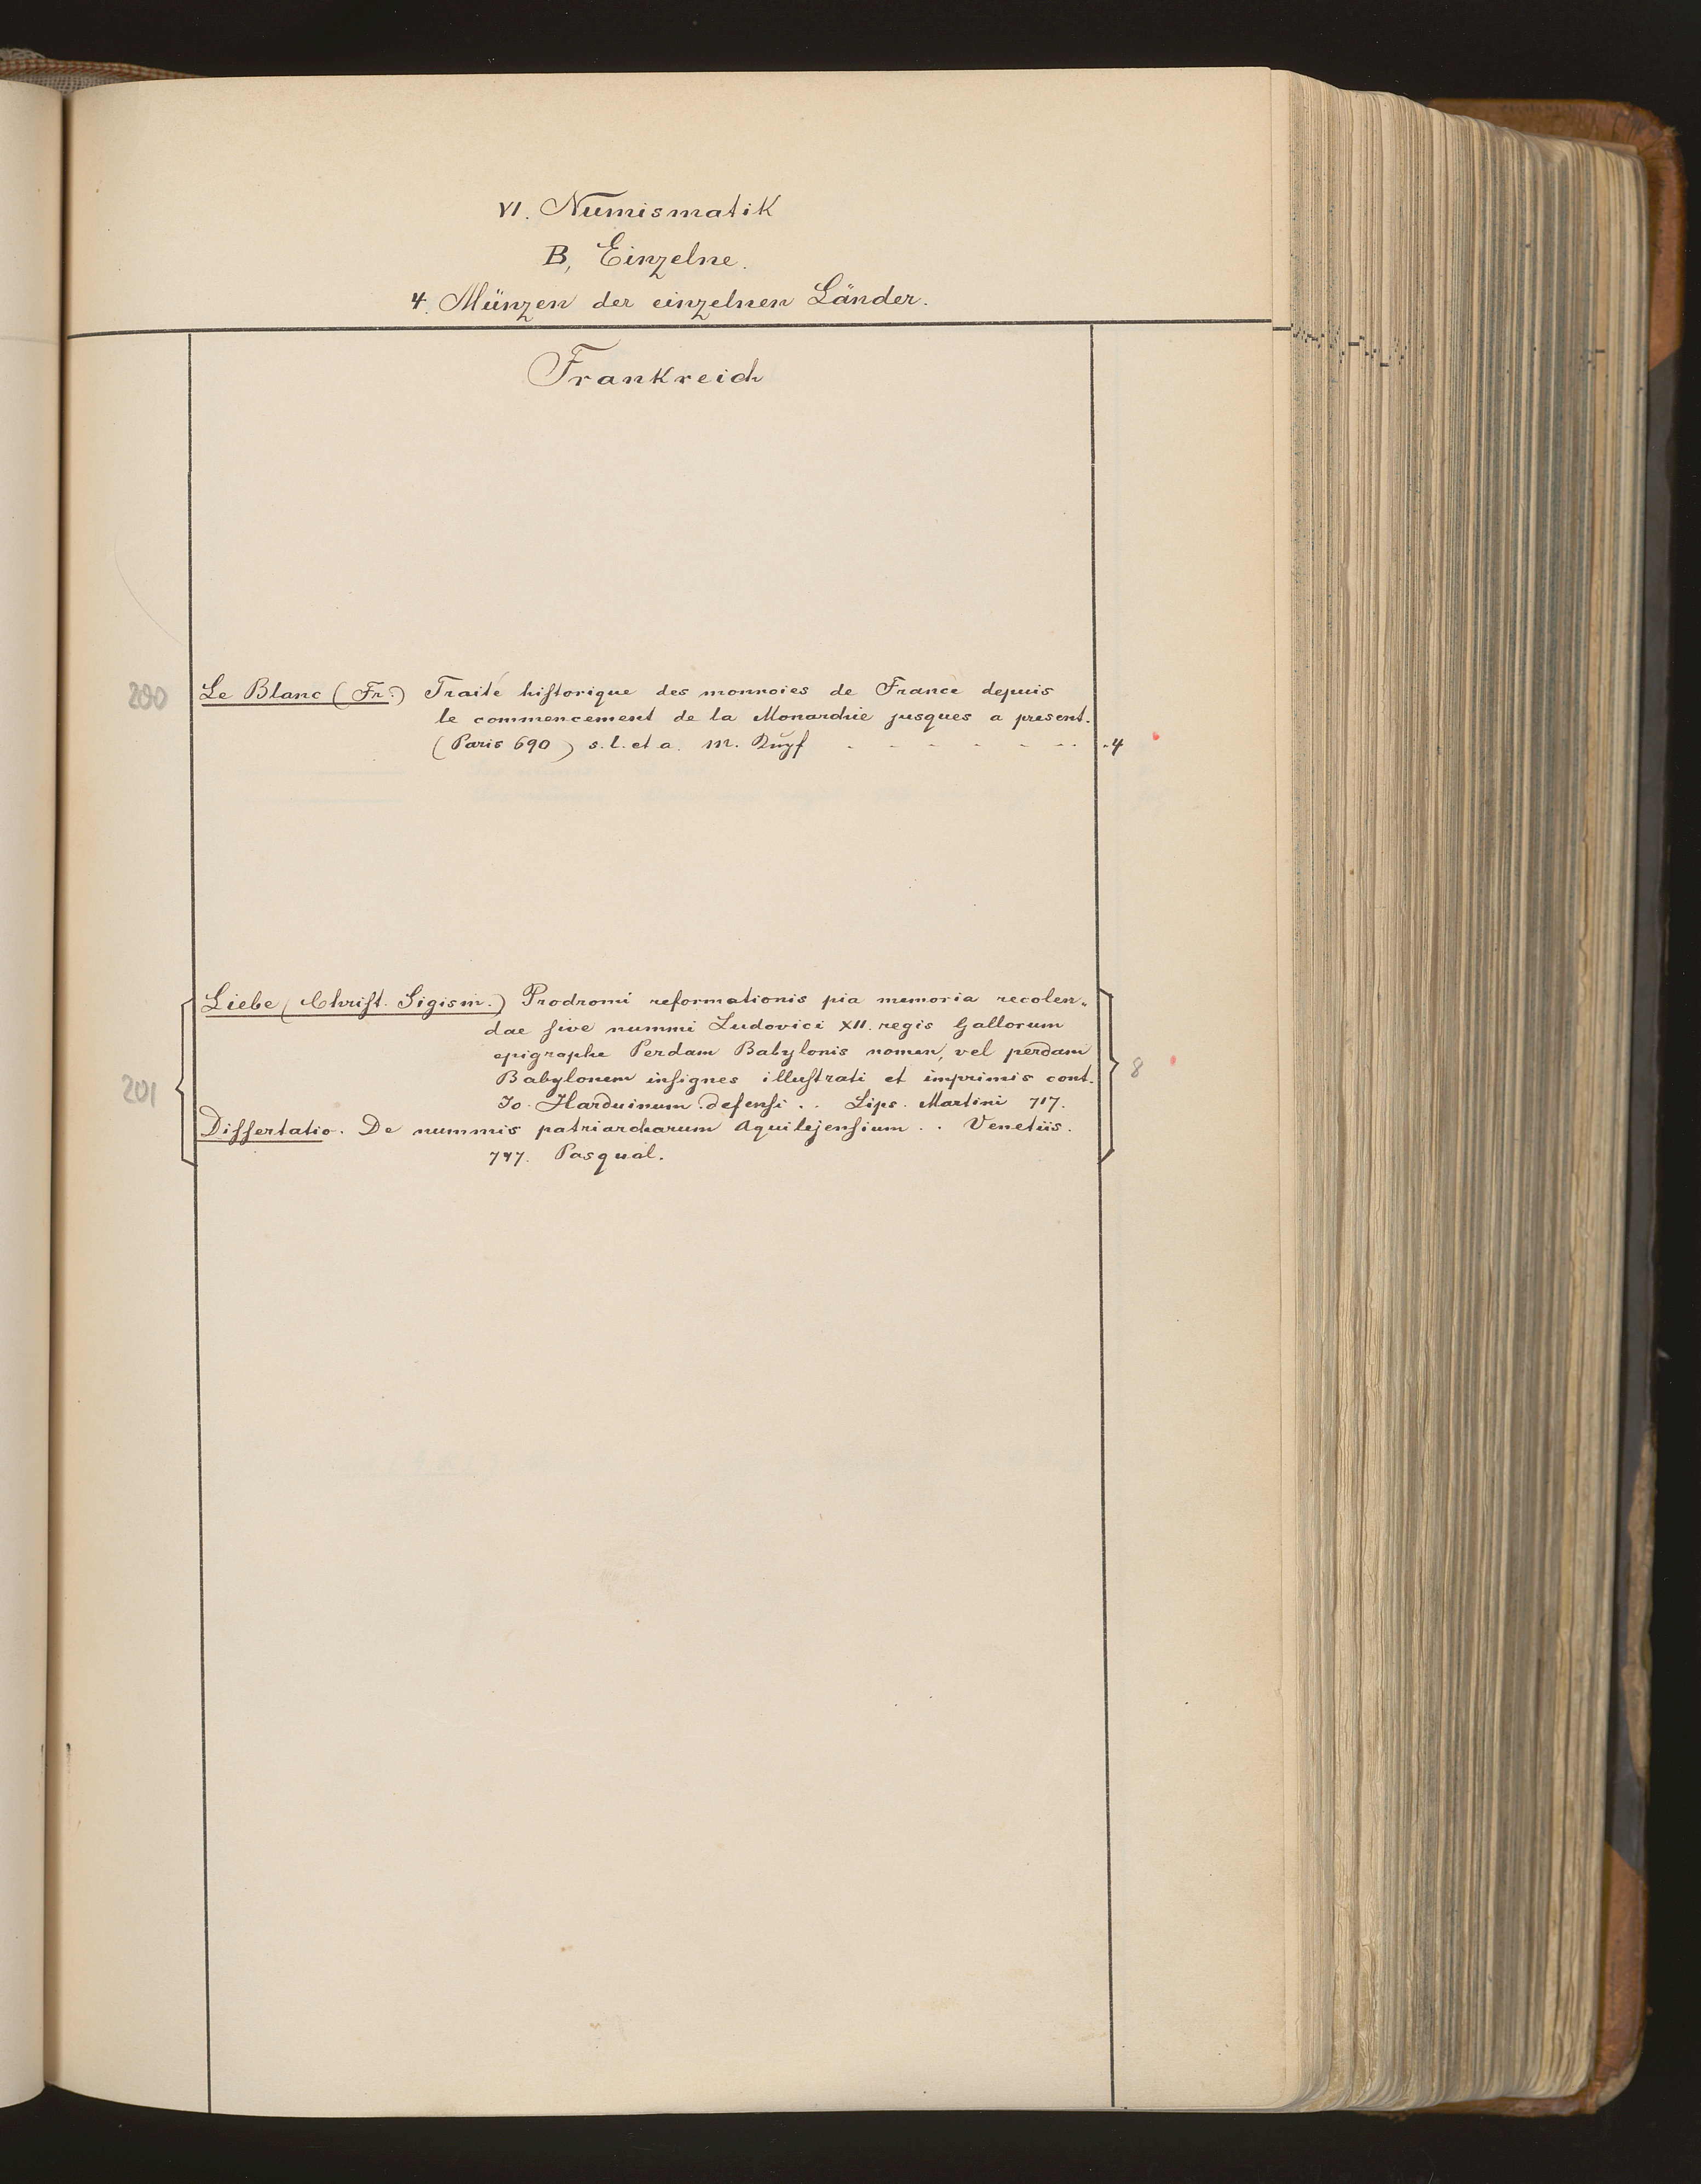 VI. Numismatik
B, Einzelne.
4. Münzen der einzelnen Länder.
Frankreich
200 Le Blanc (Fr.) Traité hiſtorique des monnoies de France depuis
le commencement de la Monarchie jusques a present.
(Paris 690) s. l. et a. m. Kupf - - - - - - . 4
Liebe (Chriſt. Sigism.) Prodromi reformationis pia memoria recolen„
dae ſive nummi Ludovici XII. regis Gallorum
epigraphe Perdam Babylonis nomen, vel perdam
201 Babylonem inſignes illuſtrati et imprimis cont. 8
Jo. Harduinum defenſi . . Lips. Martini 717.
Diſſertatio. De nummis patriarcharum Aquilejenſium . . Venetiis.
747. Pasqual.